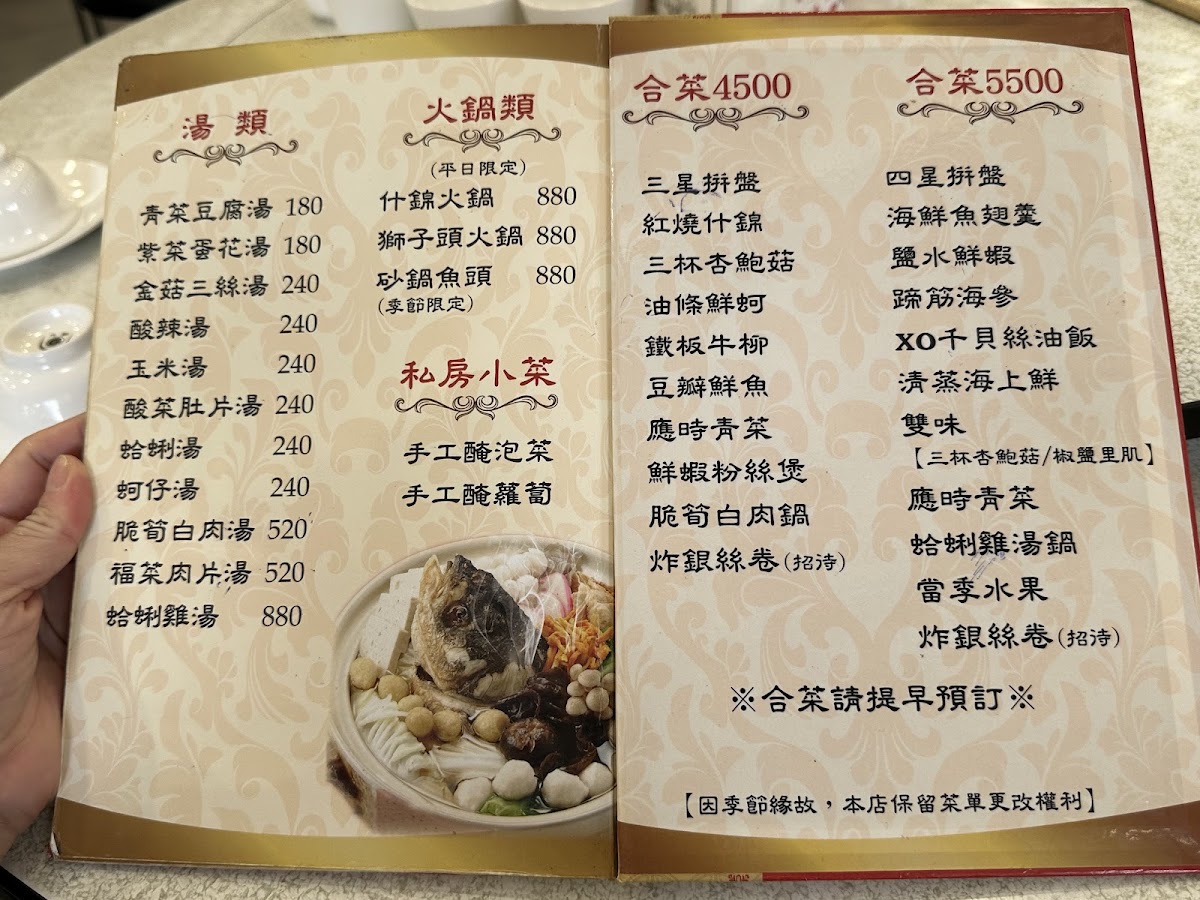 湯類
青菜豆腐湯 180
紫菜蛋花湯 180
金菇三絲湯 240
酸辣湯 240
玉米湯 240
酸菜肚片湯 240
蛤蜊湯 240
蚵仔湯 240
脆筍白肉湯 520
福菜肉片湯 520
蛤蜊雞湯 880
火鍋類
(平日限定)
什錦火鍋 880
獅子頭火鍋 880
砂鍋魚頭 880
(季節限定)
私房小菜
手工醃泡菜
手工醃蘿蔔
合菜4500
三星拼盤
紅燒什錦
三杯杏鮑菇
油條鮮蚵
鐵板牛柳
豆瓣鮮魚
應時青菜
鮮蝦粉絲煲
脆筍白肉鍋
炸銀絲卷(招待)
合菜5500
四星拼盤
海鮮魚翅羹
鹽水鮮蝦
蹄筋海參
XO干貝絲油飯
清蒸海上鮮
雙味
【三杯杏鮑菇/椒鹽里肌】
應時青菜
蛤蜊雞湯鍋
當季水果
炸銀絲卷(招待)
※合菜請提早預訂※
【因季節緣故，本店保留菜單更改權利】